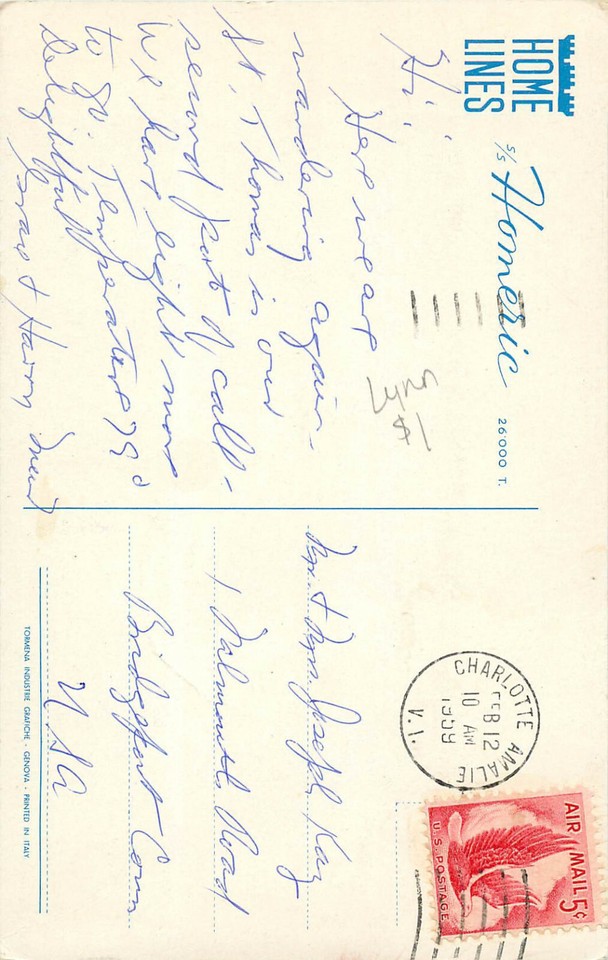 HOME
LINES
s/s Homeric
26000 T.
Hi!
Here we are
wandering again -
St. Thomas is our
second port of call -
We have eight more
to go. Temperature 79°
Delightful
Grace & Harry
Lynn
$1
CHARLOTTE AMALIE
FEB 12
10 AM
1959
V. I.
AIR MAIL 5¢
U.S. POSTAGE
Mr. & Mrs. Joseph Kay
1 Road
Bridgeport Conn
USA
TORMENA INDUSTRIE GRAFICHE - GENOVA - PRINTED IN ITALY